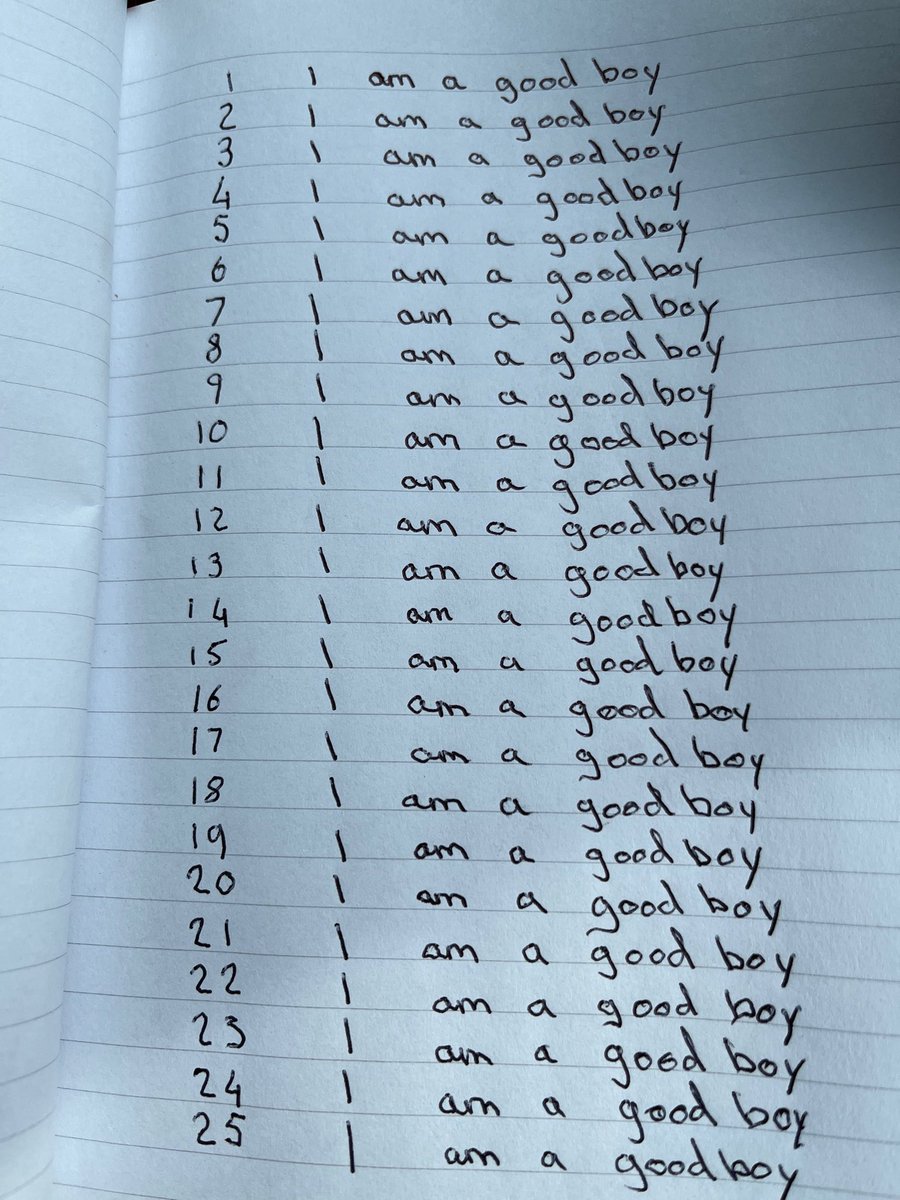 1 I am a good boy
2 I am a good boy
3 I am a good boy
4 I am a good boy
5 I am a good boy
6 I am a good boy
7 I am a good boy
8 I am a good boy
9 I am a good boy
10 I am a good boy
11 I am a good boy
12 I am a good boy
13 I am a good boy
14 I am a good boy
15 I am a good boy
16 I am a good boy
17 I am a good boy
18 I am a good boy
19 I am a good boy
20 I am a good boy
21 I am a good boy
22 I am a good boy
23 I am a good boy
24 I am a good boy
25 I am a good boy